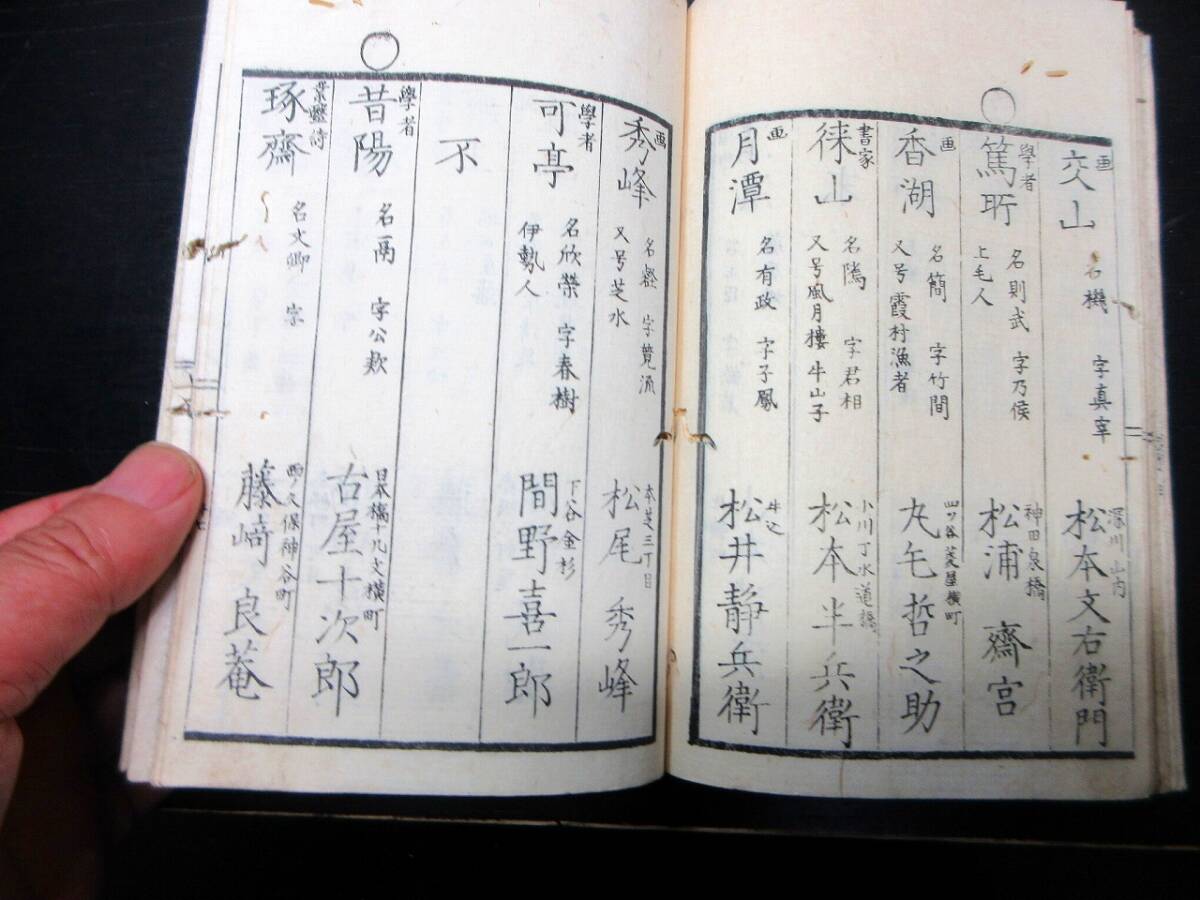 画
交山 名機 字真宰
深川山内
松本文右衛門
學者
篤所 名則武 字乃侯
上毛人
神田泉橋
松浦齋宮
画
香湖 名簡 字竹間
又号霞村漁者
四ツ谷菱屋横町
丸毛哲之助
書家
徠山 名隲 字君相
又号風月樓 牛山子
小川丁水道橋
松本半兵衛
画
月潭 名有政 字子鳳
牛込
松井静兵衛
画
秀峰
又号芝水
本芝三丁目
松尾秀峰
學者
可亭 名欣榮 字春樹
伊勢人
下谷金杉
間野喜一郎
不
學者
昔陽 名鬲 字公款
日本橋十九文横町
古屋十次郎
琢齋 名文卿 字
久保神谷町
藤﨑良菴